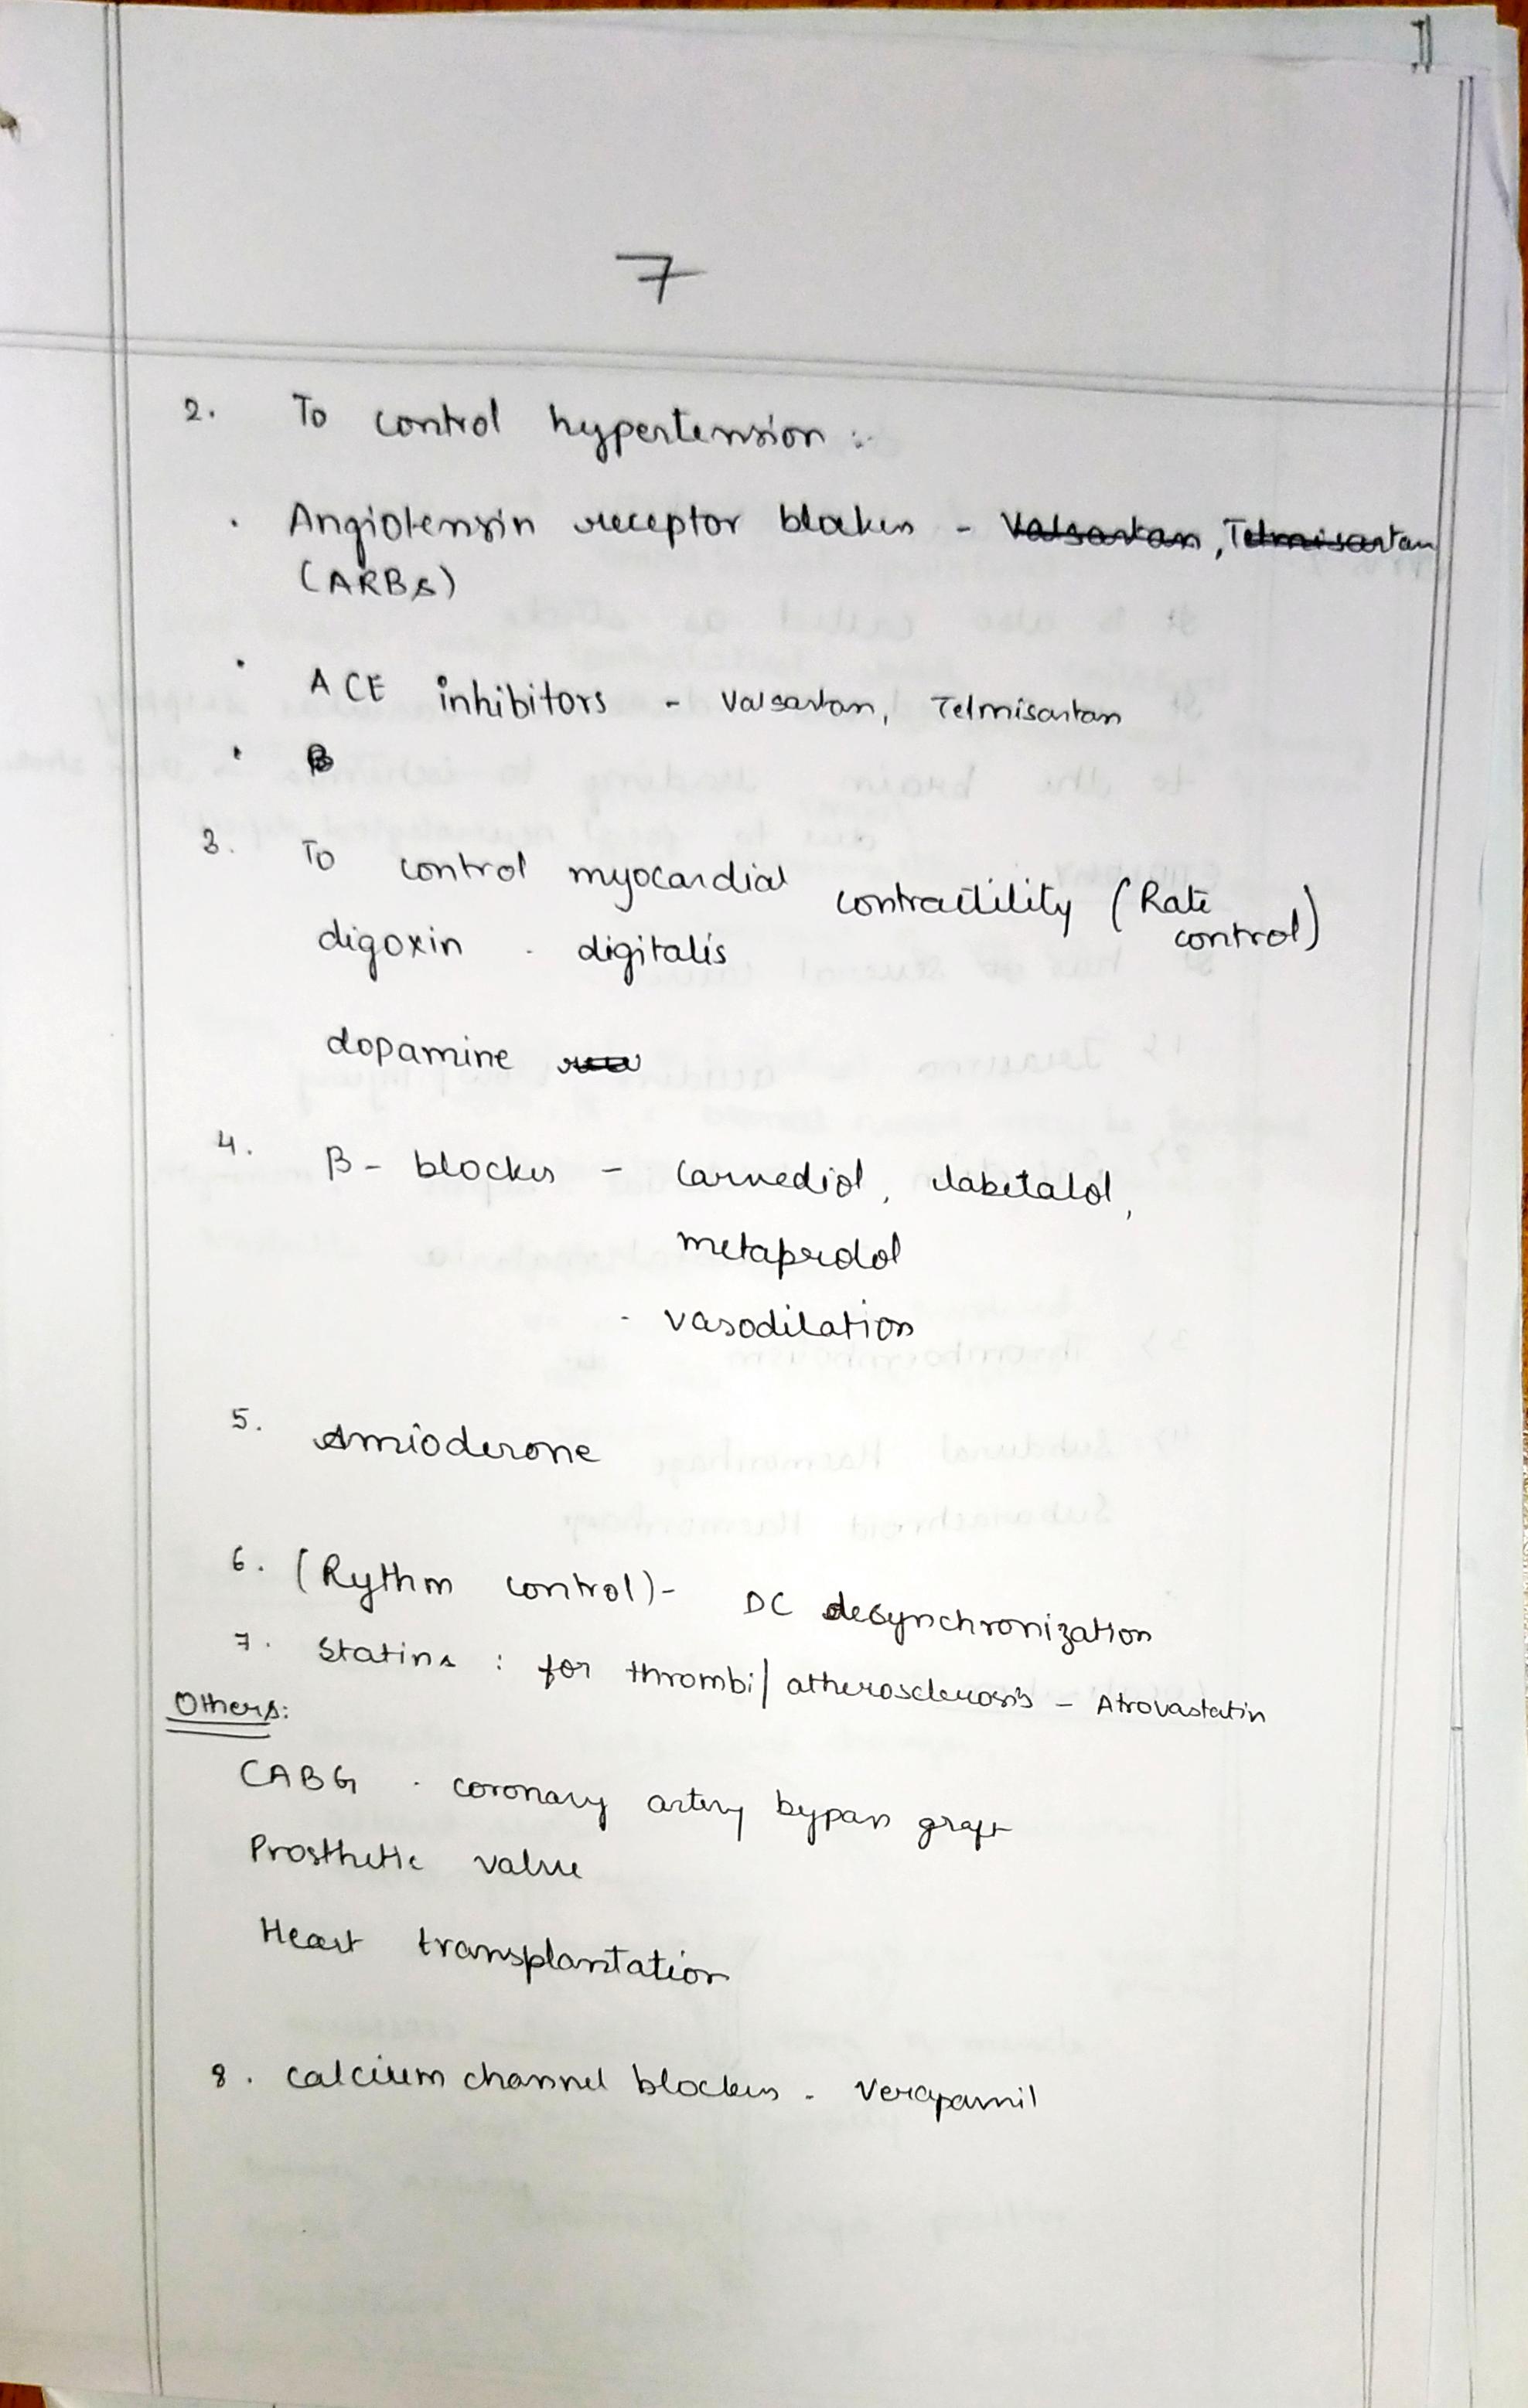 7
2. To control hypertension :-
. Angiotensin receptor blockers - Valsartan, Telmisartan
(ARBs)
. ACE inhibitors - Valsartan, Telmisartan
. B
3. To control myocardial contractility (Rate control)
digoxin - digitalis
dopamine
4. β- blockers - carvediol, labetalol,
metaprolol
- vasodilation
5. Amioderone
6. (Rythm control)- DC desynchronization
7. Statins : for thrombi/atherosclerosis - Atrovastatin
Others:
CABG - coronary artery bypass graft
Prosthetic valve
Heart transplantation
8. calcium channel blockers - Verapamil